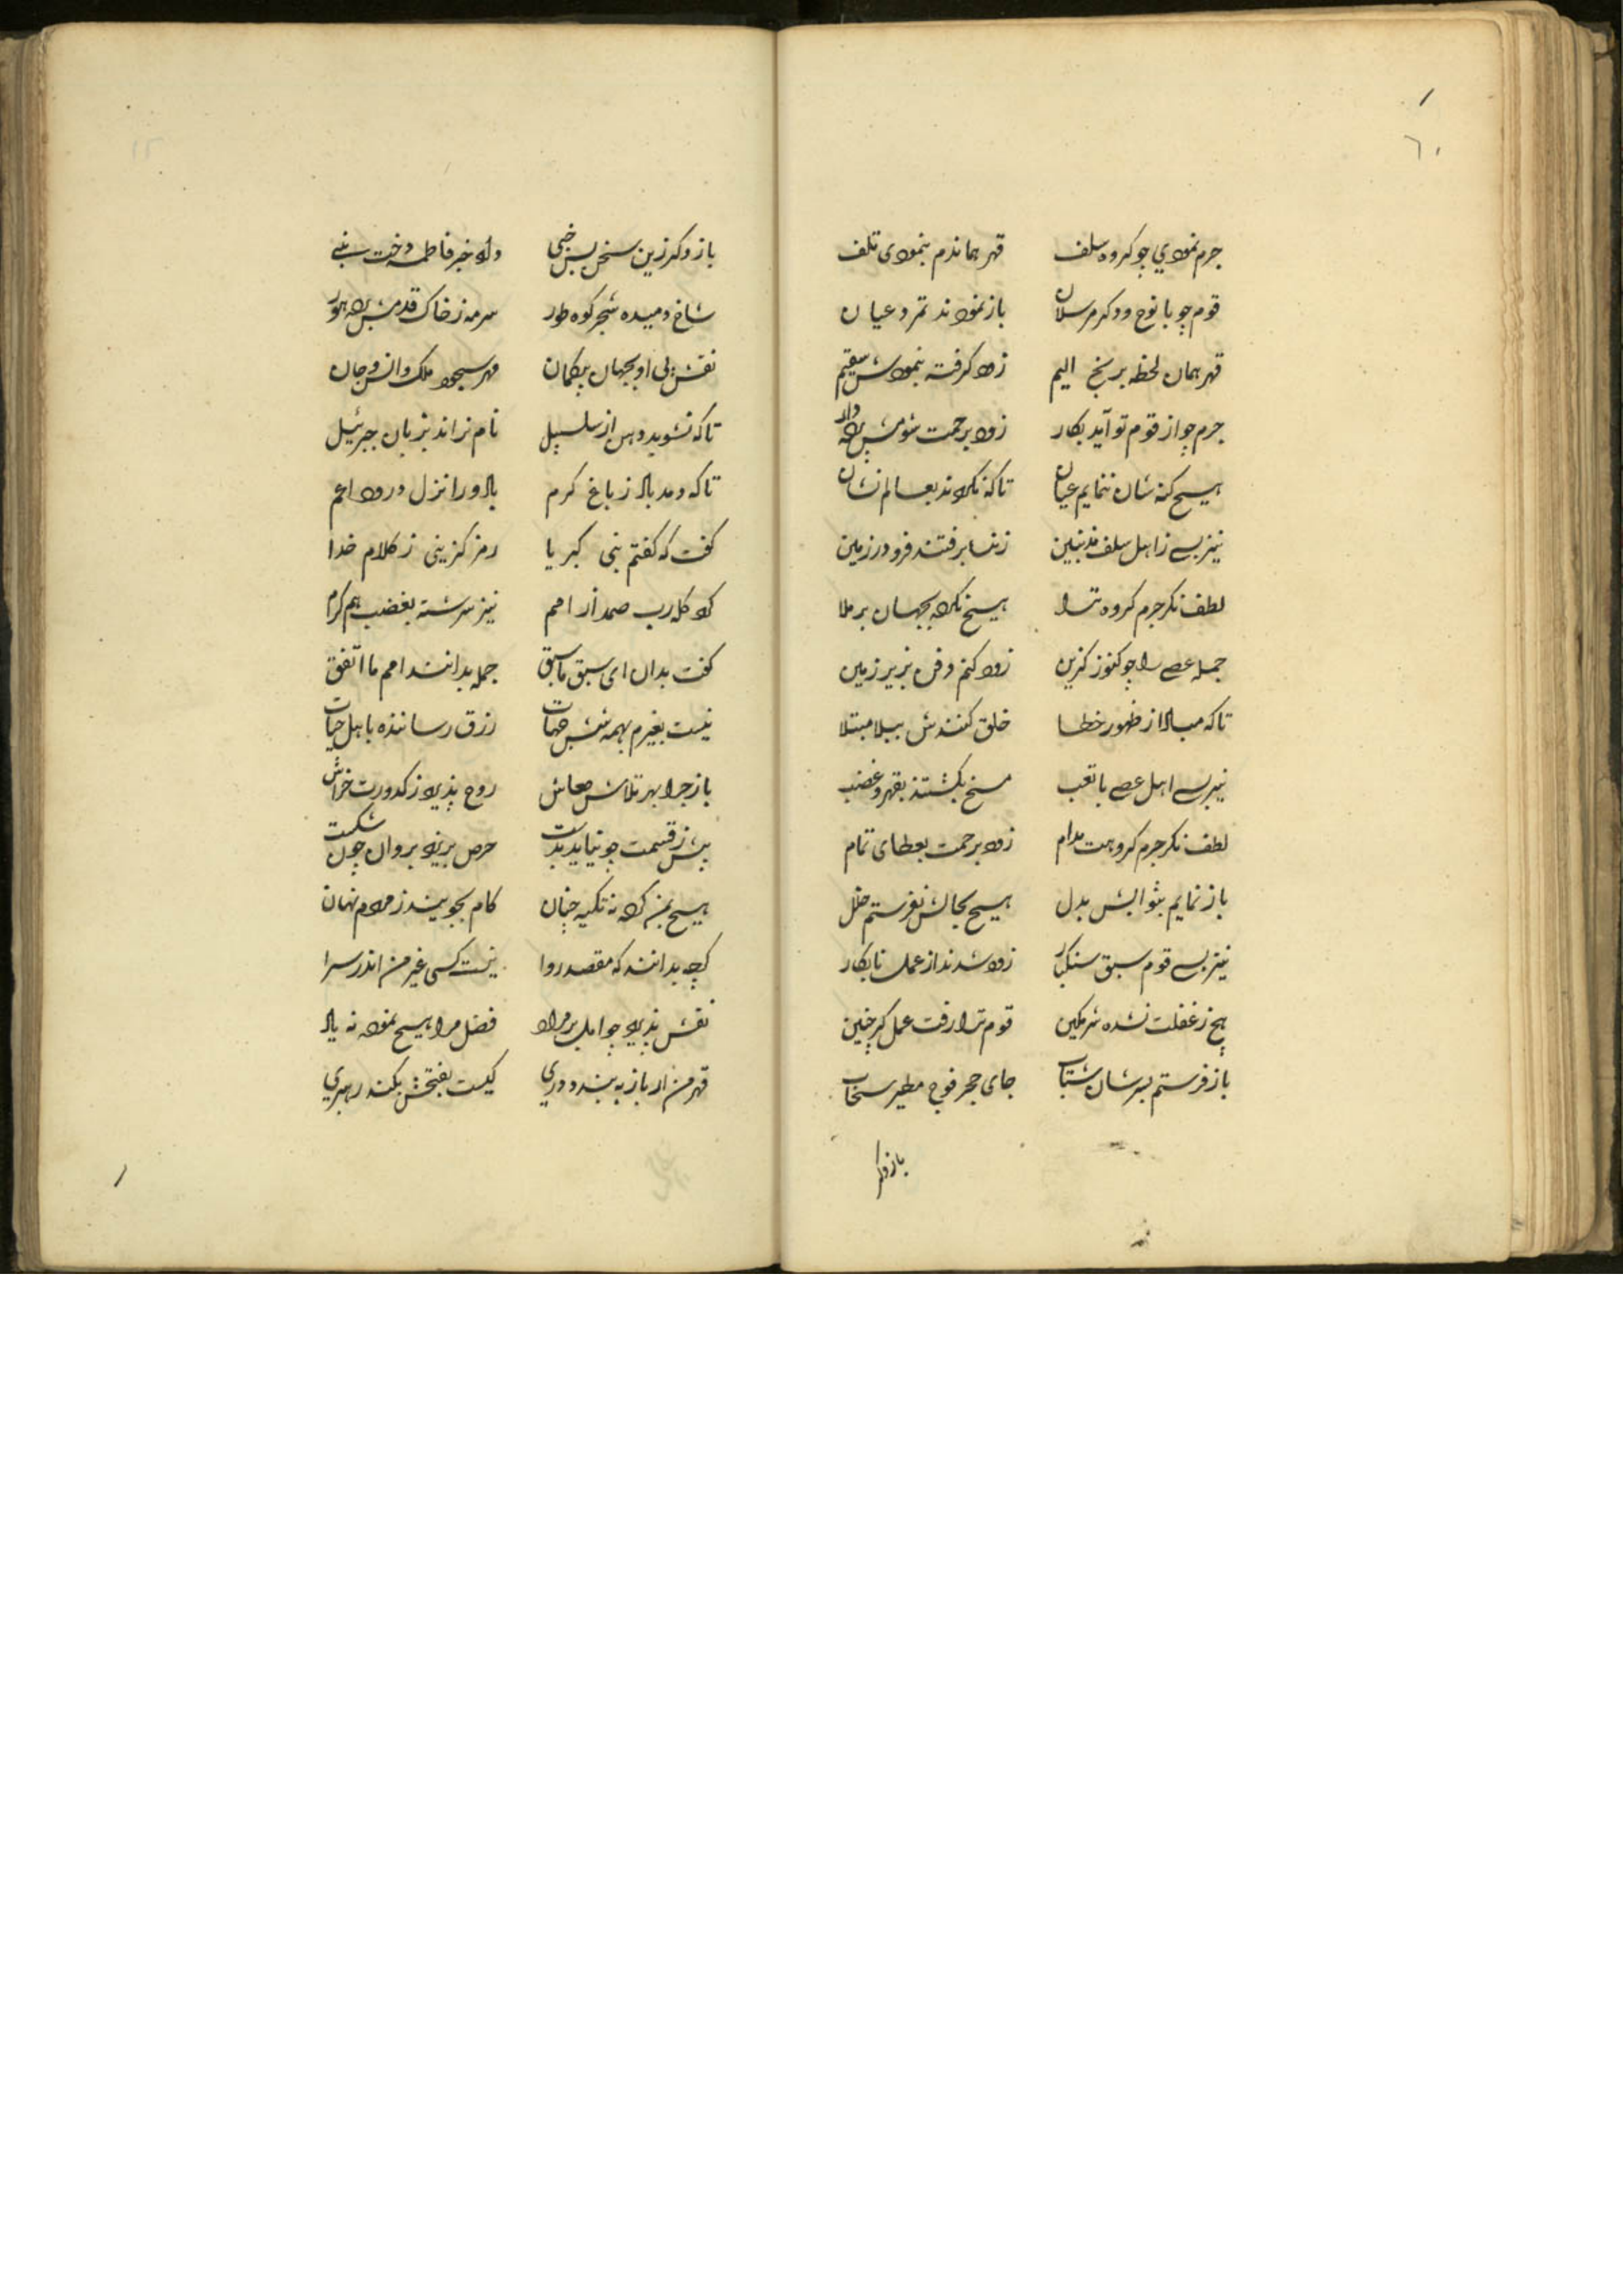 ٦٠
جرم نمودی چو کروه سلف قهر هماندم بنمودی تلف
قوم چو با نوح و دکر مرسلان باز نمودند تمرد عیان
قهر همان لحظه برنج الیم زود کرفته بنمودش سقیم
جرم چو از قوم تو آید بکار زود برحمت شومش پرده دار
هیچ کنه شان ننمایم عیان تا که نکردند بعالم نشان
نیز بسے ز اهل سلف مذنبین زنسا برفتند فرو در زمین
لطف نکر جرم کروه ترا هیچ نکرده بجهان برملا
جمله عصے را چو کنوز کزین زود کنم دفن بزیر زمین
تا که مبادا از ظهور خطا خلق کنندش ببلا مبتلا
نیز بسے اهل عصے با تعب مسخ بکشتند بقهر و غضب
لطف نکر جرم کروهت مدام زود برحمت بعطای تمام
باز نمایم بثوابش بدل هیچ بحالش نفرستم خلل
نیز بسے قوم سبق سنکبار زود شدند از عمل نابکار
هیچ ز غفلت نشده شرمکین قوم ترا رفت عمل کر چنین
باز فرستم بسرشان شتاب جای حجر فوج مطیر سحاب
باز دکر
باز دکر زین سخن بس خبی داد خبر فاطمه دخت نبے
شاخ دمیده شجر کوه طور سرمه ز خاک قدمش برده حور
نقش پی او بجهان بیکمان مهر سجود ملک و انس و جان
تا که نشوید دهن از سلسبیل نام نراند بزبان جبرئیل
تا که دمد باد ز باغ کرم باد ورا نزل درود اعم
کفت که کفتم بنی کبریا رمز کزینی ز کلام خدا
کرد کله رب صمد از امم نیز سرشته بغضب هم کرم
کفت بدان ای سبق ما سبق جمله بدانند امم ما اتفق
نیست بغیرم بهمه شش جهات رزق رساننده باهل حیات
باز چرا بهر تلاش معاش روح پذیرد ز کدورت خراش
بیش ز قسمت چو نیاید بدست حرص پذیرد بروان چون شکست
هیچ بمن کرد نه تکیه چنان کام بجویند ز مردم نهان
کرچه بدانند که مقصد روا نیست کسی غیر من اندر سرا
نقش پذیرد چو امل بر مراد فضل مرا هیچ نمود نه یاد
قهر من ار باز به بندد دری کیست بفتحش بکند رهبری